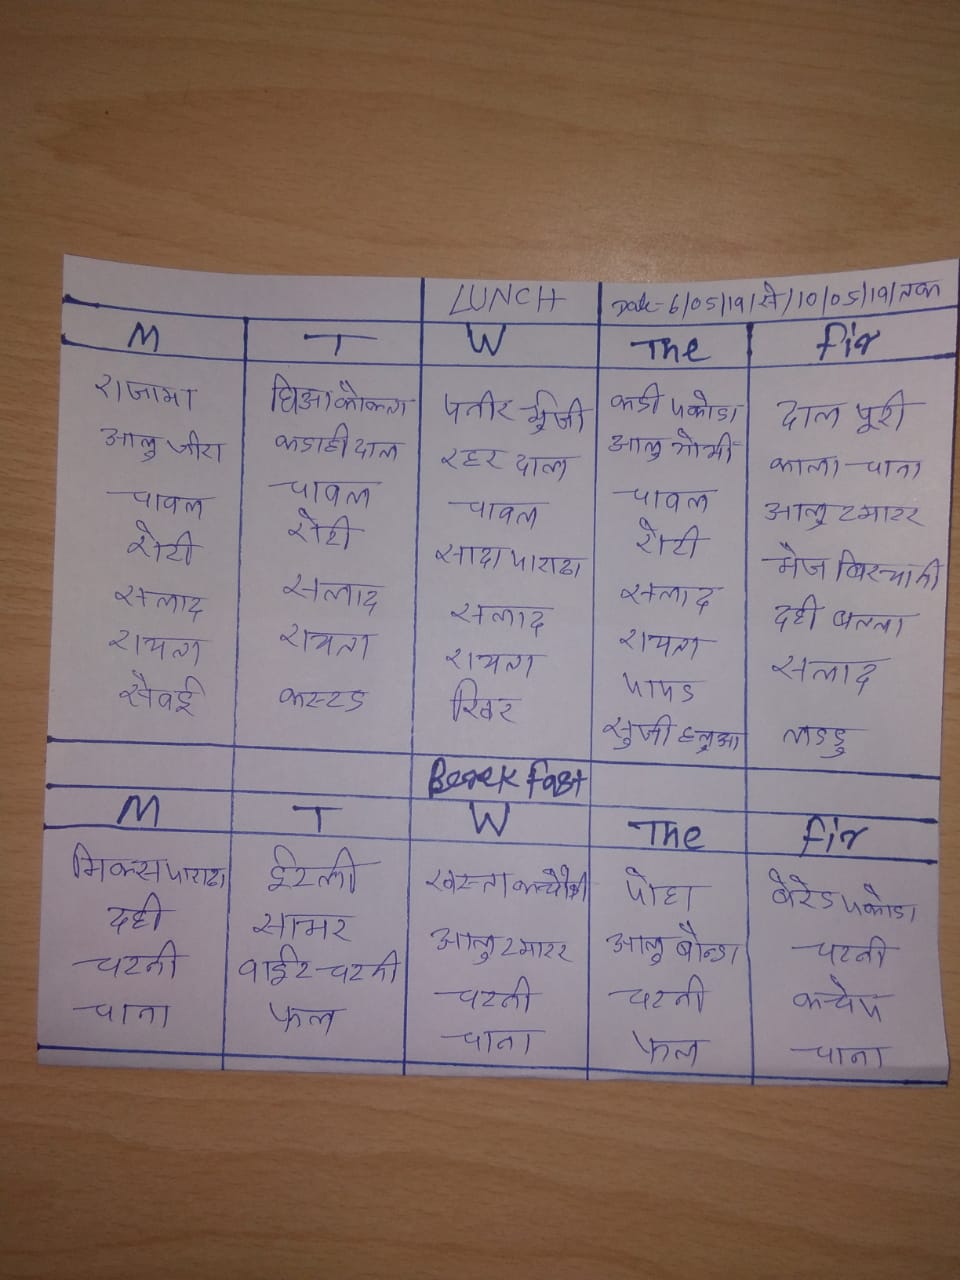 LUNCH Date-6/05/19/से/10/05/19/तक
M T W The fir
राजामा घिआ कौकता पनीर भुजी कडी पकोडा दाल पूरी
आलु जीरा कडाही दाल रहर दाल आलु गोभी काला चाना
चावल चावल चावल चावल आलु टमाटर
रोटी रोटी सादा पाराठा रोटी भेज बिरयानी
सलाद सलाद सलाद सलाद दही बल्ला
रायता रायता रायता रायता सलाद
सेवई कस्टड खिर पापड लाडडु
सुजी हलुआ
Berek fast
M T W The fir
मिकस पाराठा ईटली खस्ता कचौरी पोहा बैरेड पकोडा
दही साभर आलु टमाटर आलु बौन्डा चटनी
चटनी वाईट चटनी चटनी चटनी कचेप
चाना फल चाना फल चाना